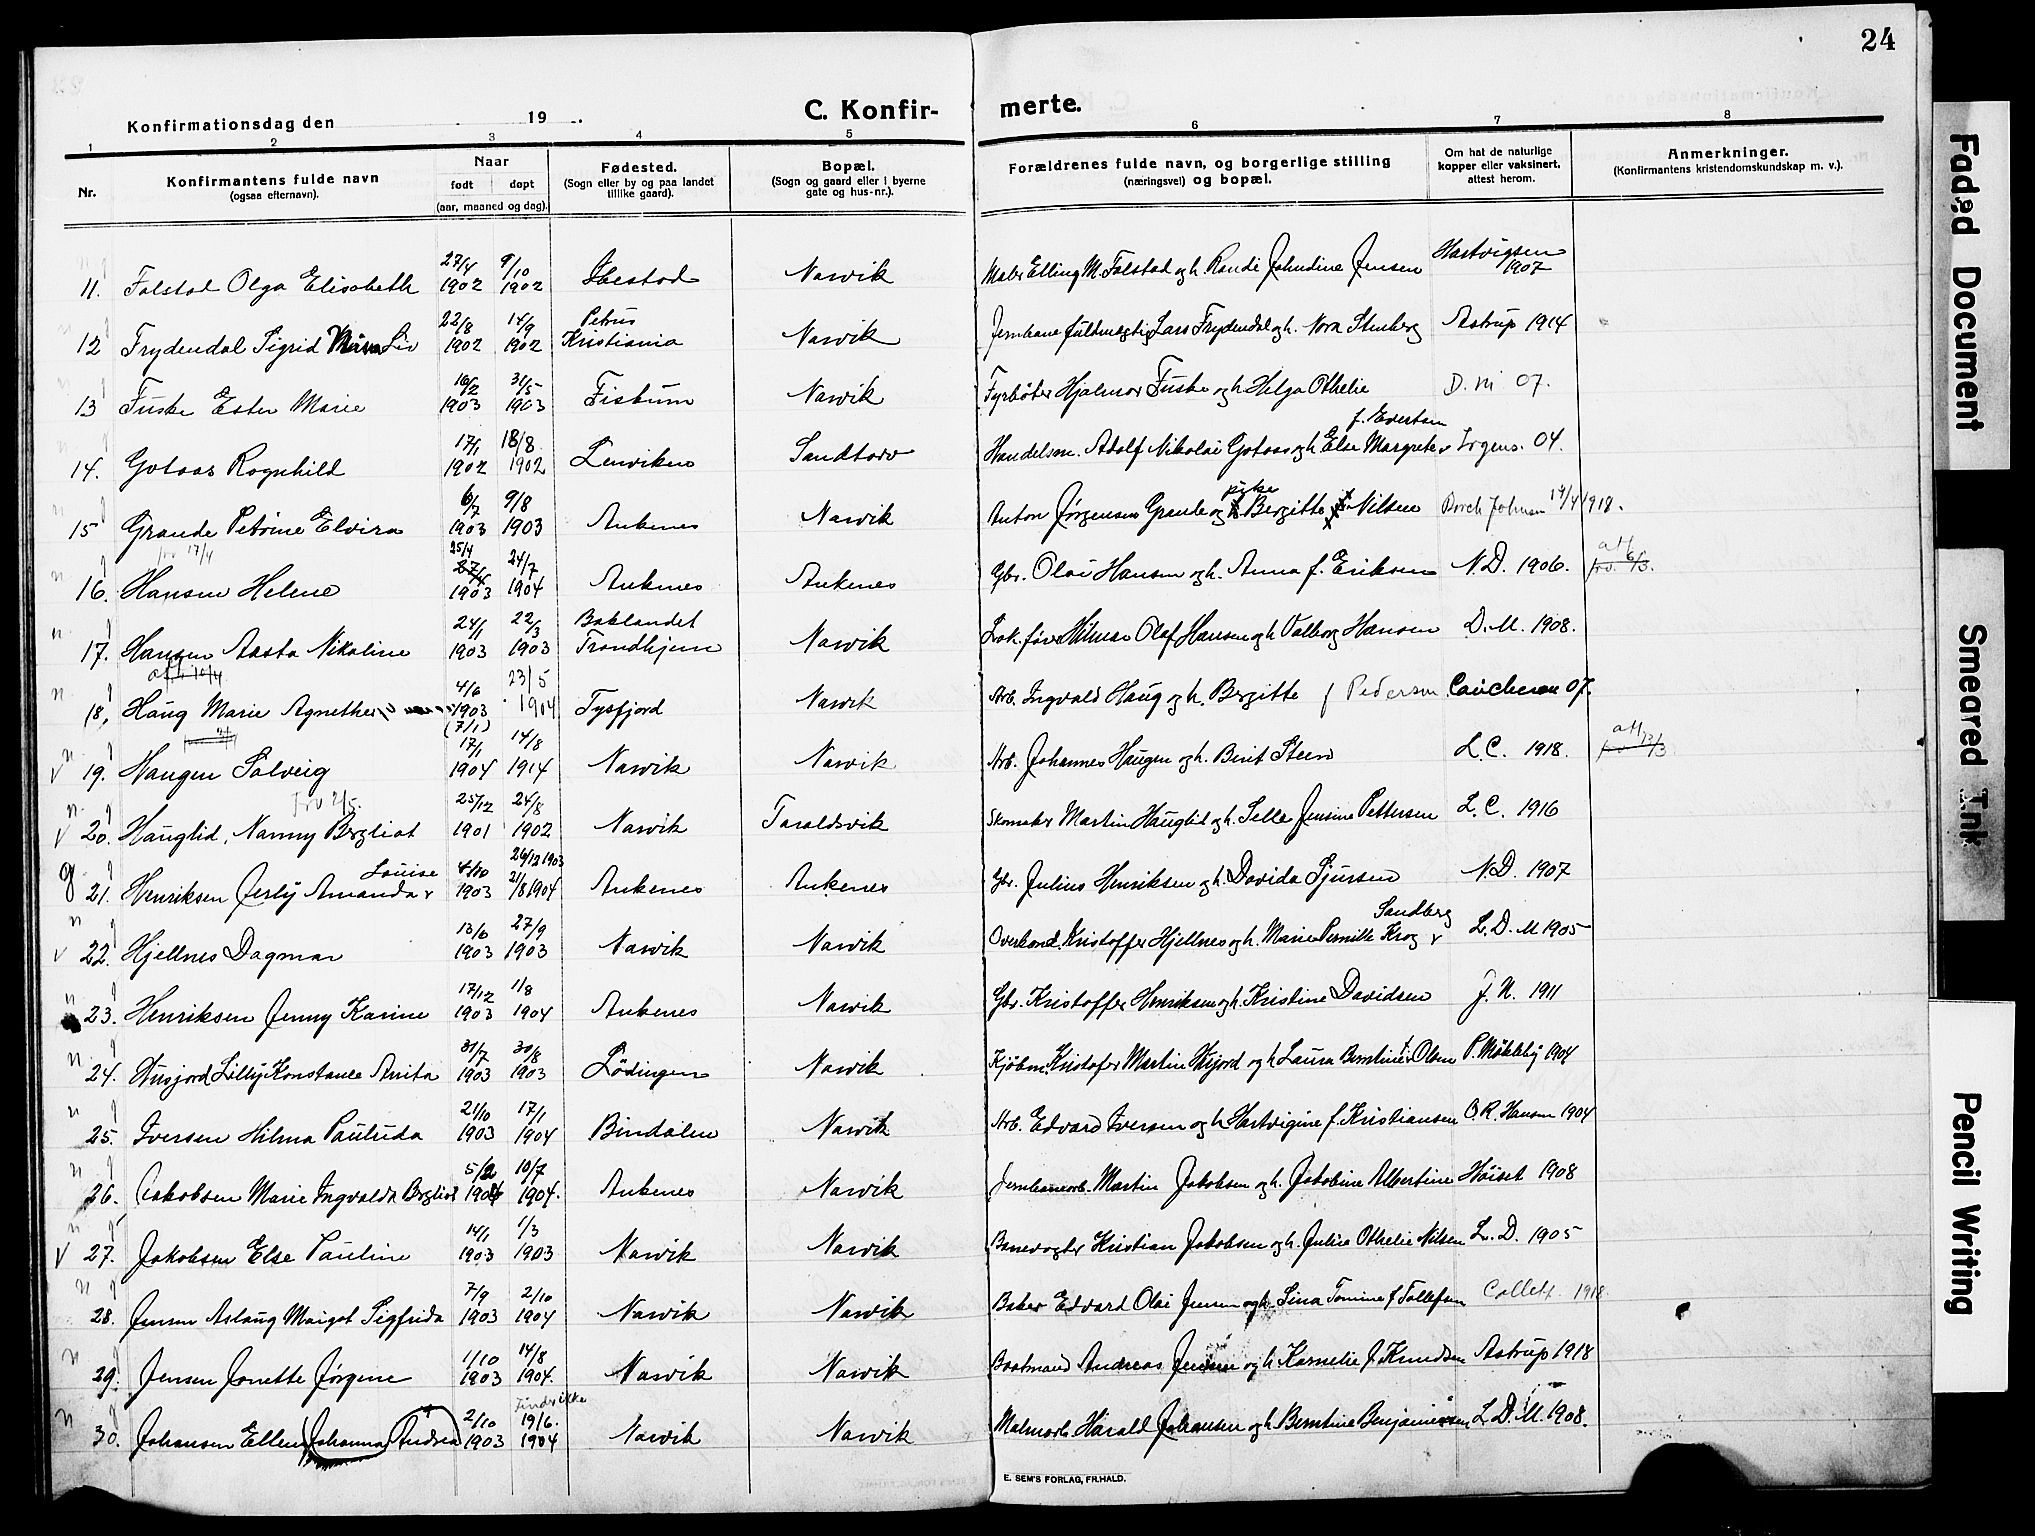 24
Konfirmationsdag den 19
C. Konfir- merte.
1 2 3 4 5 6 7 8
Nr.
Konfirmantens fulde navn
(ogsaa efternavn).
Naar
født døpt
(aar, maaned og dag).
Fødested.
(Sogn eller by og paa landet
tillike gaard).
Bopæl.
(Sogn og gaard eller i byerne
gate og hus-nr.).
Forældrenes fulde navn, og borgerlige stilling
(næringsvei) og bopæl.
Om hat de naturlige
kopper eller vaksinert,
attest herom.
Anmerkninger.
(Konfirmantens kristendomskundskap m. v.).
11. Falstad Olga Elisabeth 27/4 1902 9/10 1902 Ibestad Narvik Maler Elling M. Falstad og h. Randi Johndine Jensen Hartvigsen 1907
12 Frydendal Sigrid Liv 22/8 1902 14/9 1902 Petrus Kristiania Narvik Jernbanefuldmægtig Lars Frydendal og h. Nora Stenberg Astrup 1914
13 Fuske Ester Marie 16/2 1903 31/5 1903 Fiskum Narvik Fyrbøter Hjalmar Fuske og h. Helga Othelie D. M 07.
14. Gotaas Ragnhild 17/1 1902 18/8 1902 Lenviken Sandtorv Handelsm. Adolf Nikolai Gotaas og h. Else Margrete f. Evertsen Irgens. 04.
15 Grande Petrine Elvira 6/7 1903 9/8 1903 Ankenes Narvik Anton Jørgensen Grande og pike Bergitte Nilsen Borch Johnsen 14/4 1918.
16. Hansen Helene 25/4 1903 24/7 1904 Ankenes Ankenes Gbr. Olai Hansen og h. Anna f. Eriksen N. D. 1906. att frv. 6/3.
17. Hansen Aasta Nikoline 24/1 1903 22/3 1903 Baklandet Trondhjem Narvik Lok.fører Hilmar Olaf Hansen og h. Valborg Hansen D. M. 1908.
18. Haug Marie Agnethe 4/6 1903 23/5 1904 Tysfjord Narvik Arb. Ingvald Haug og h. Bergitte f Pedersen Caucheron 07.
19. Haugen Solveig (7/1) 17/1 1904 14/8 1914 Narvik Narvik Arb. Johannes Haugen og h. Berit Steen L. C. 1918. att 13/3
20. Hauglid, Nanny Bergliot frv 2/5. 25/12 1901 24/8 1902 Narvik Taraldsvik Skomaker Martin Hauglid og h. Selle Jensine Pettersen L. C. 1916
21. Henriksen Jerly Amanda Louise 4/10 1903 26/12 1903 21/8 1904 Ankenes Ankenes Gbr. Julius Henriksen og h. Davida Sjursen N. D. 1907
22. Hjellnes Dagmar 13/6 1903 27/9 1903 Narvik Narvik Overkond. Kristoffer Hjellnes og h. Marie Pernille Krog Sandberg L. D. M 1905
23. Henriksen Jenny Karine 17/12 1903 1/8 1904 Ankenes Narvik Gbr. Kristoffer Henriksen og h. Kristine Davidsen J. N. 1911
24. Husjord Lilly Konstanse Anita 31/7 1903 30/8 1903 Lödingen Narvik Kjöbm. Kristofer Martin Husjord og h. Laura Berntine f. Olsen P. Møkleby 1904
25. Iversen Hilma Paulida 21/10 1903 17/1 1904 Bindalen Narvik Arb. Edvard Iversen og h. Hartvigine f. Kristiansen O. R. Hansen 1904
26. Jakobsen Marie Ingvalda Bergliot 5/2 1904 10/7 1904. Ankenes Narvik Jernbanearb. Martin Jakobsen og h. Jakobine Albertine Höiset 1908
27. Jakobsen Else Pauline 14/1 1903 1/3 1903 Narvik Narvik Banevogter Kristian Jakobsen og h. Julie Othelie Nilsen L. D. 1905
28. Jensen Aslaug Margot Sigfrida 7/9 1903 2/10 1904 Narvik Narvik Baker Edvard Olai Jensen og h. Lina Tomine f Tollefsen Collett. 1918
29. Jensen Jonette Jørgine 1/10 1903 14/8 1904. Narvik Narvik Baatmand Andreas Jensen og h. Kornelie f. Knudsen Astrup 1918
30. Johansen Ellen Johanna Andrea 2/10 1903 Findes ikke 19/6. 1904 Narvik Narvik Malmarb. Harald Johansen og h. Berntine Benjaminsen L. D. M. 1908.
E. SEM'S FORLAG, FR.HALD.
Faded Document
Smeared Ink
Pencil Writing